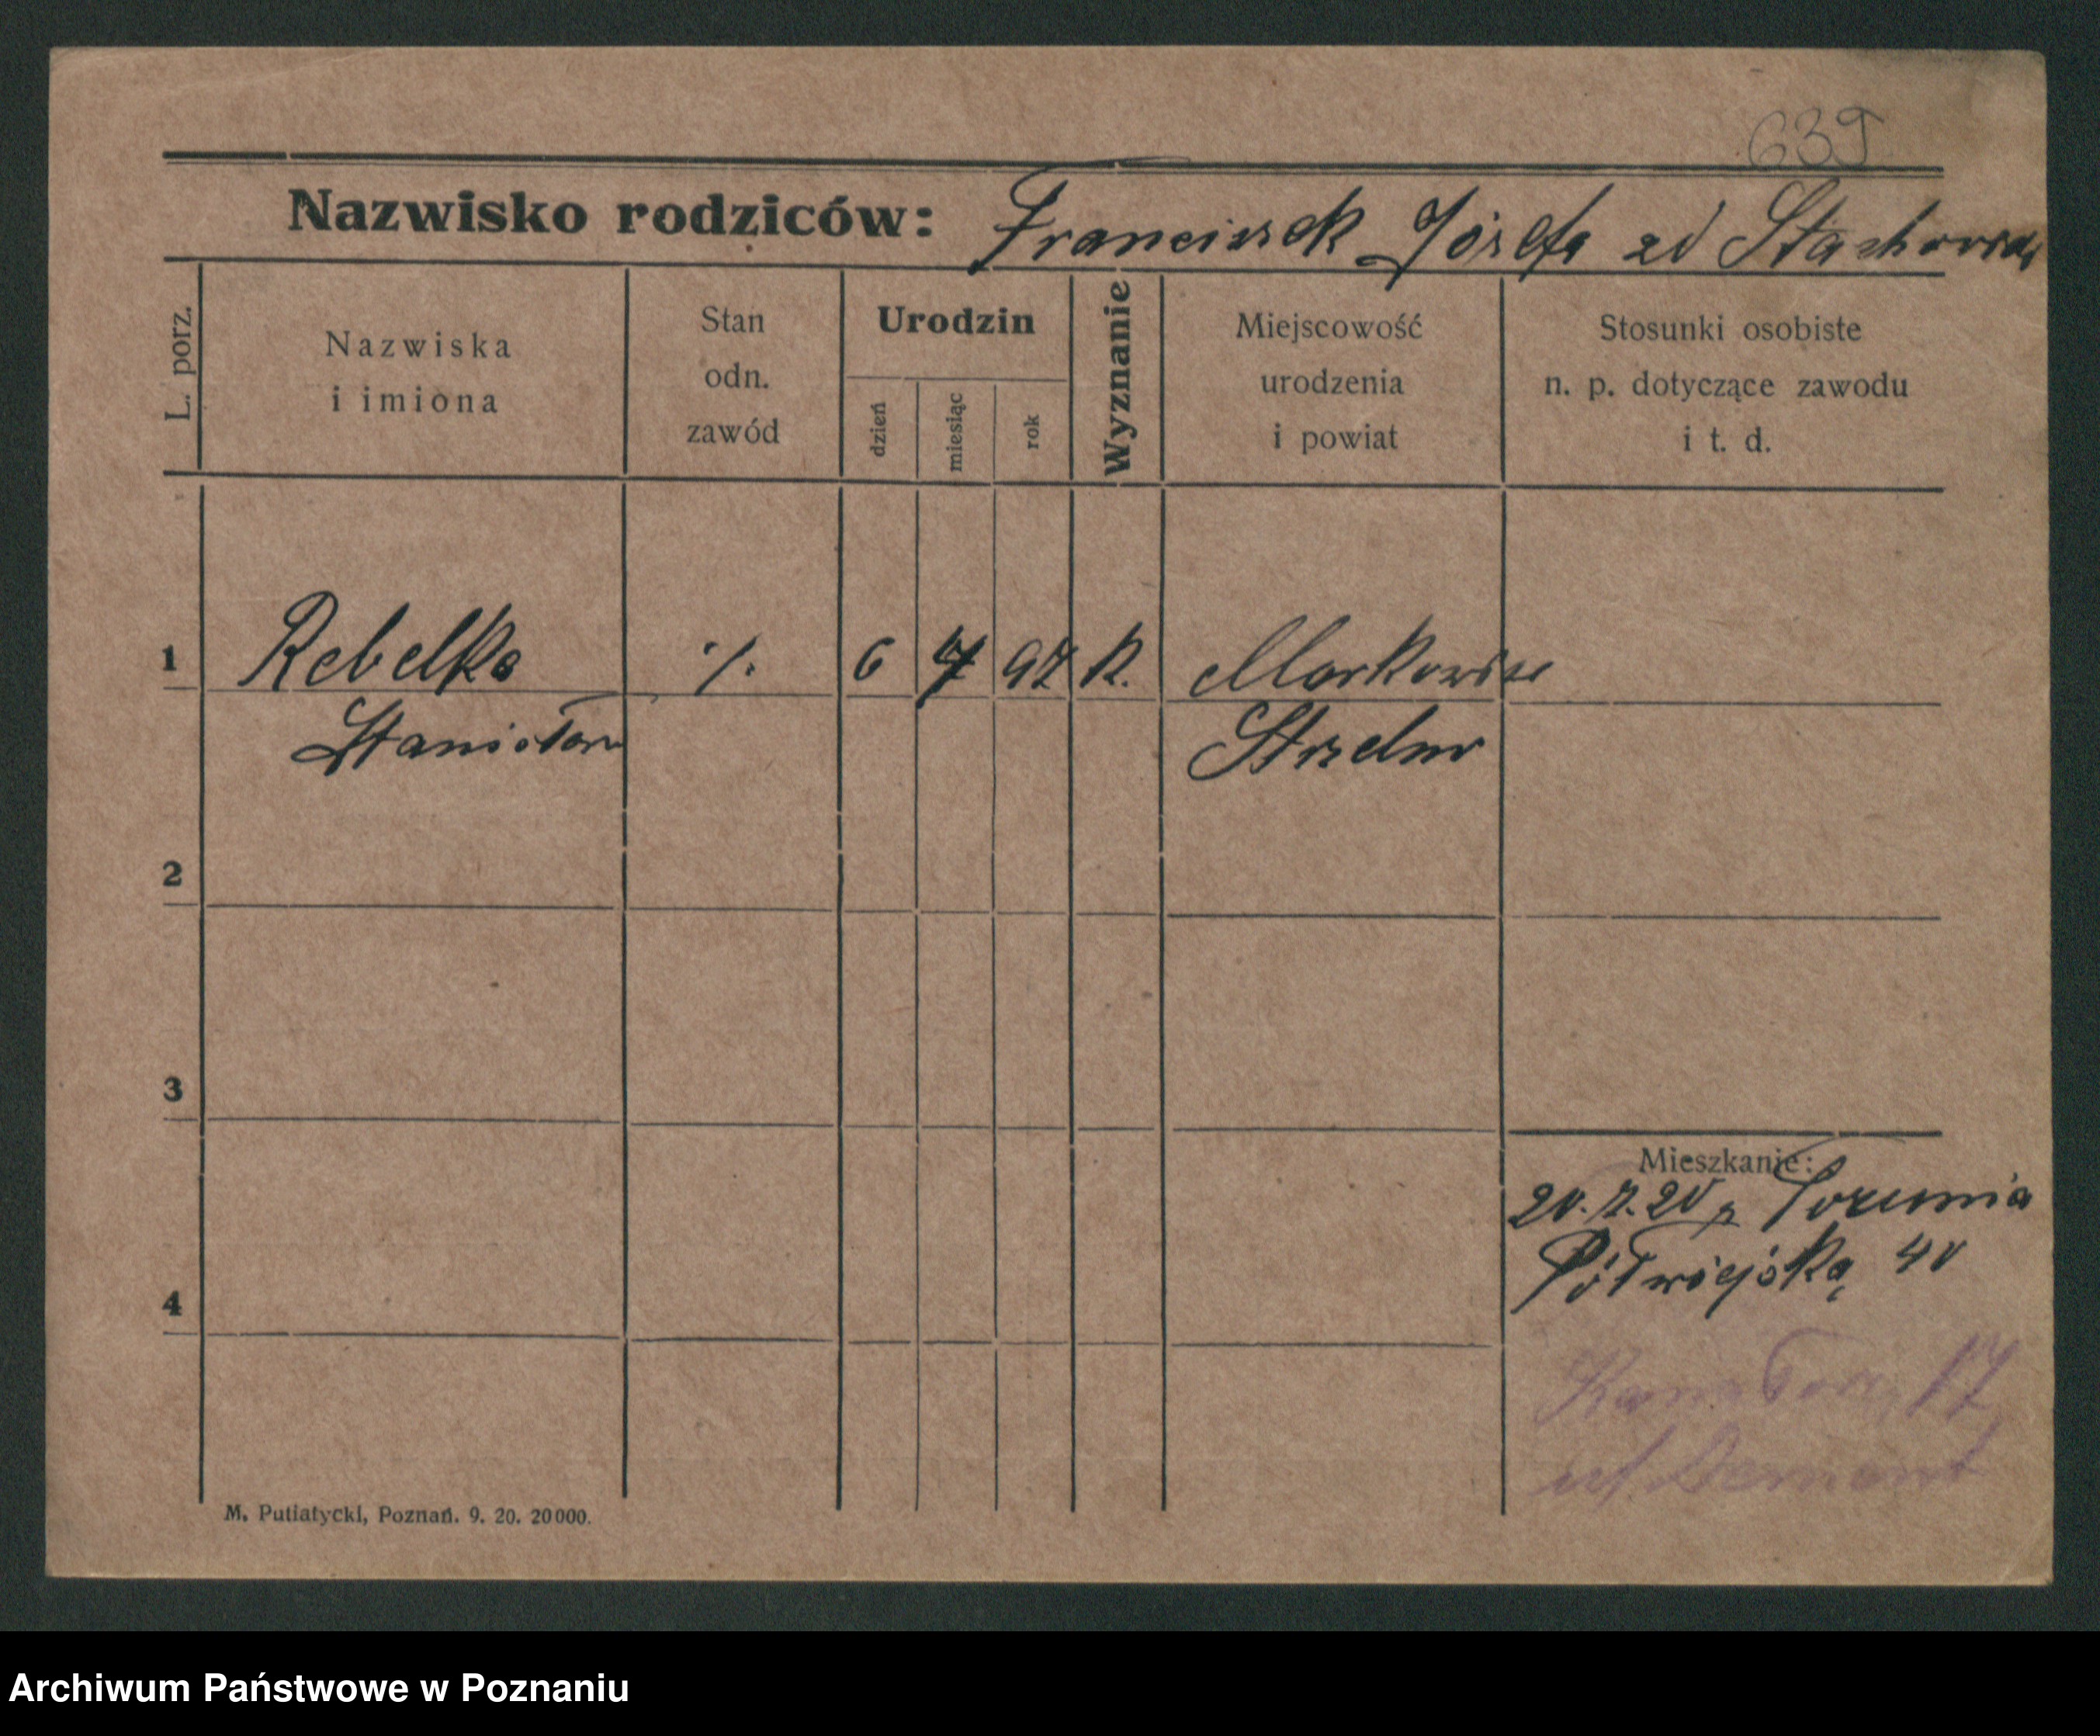 639
Nazwisko rodziców: Franciszek Józefa zd Stachowska
L. porz.
Nazwiska
i imiona
Stan
odn.
zawód
Urodzin
dzień
miesiąc
rok
Wyznanie
Miejscowość
urodzenia
i powiat
Stosunki osobiste
n. p. dotyczące zawodu
i t. d.
1 Rebelka ·/. 6 4 97 k. Markowice
Stanisław Strzelno
2
3
Mieszkanie:
20.7.20 z Torunia
Półwiejską 40
4
17
ul.
M. Putiatycki, Poznań. 9. 20. 20000.
Archiwum Państwowe w Poznaniu